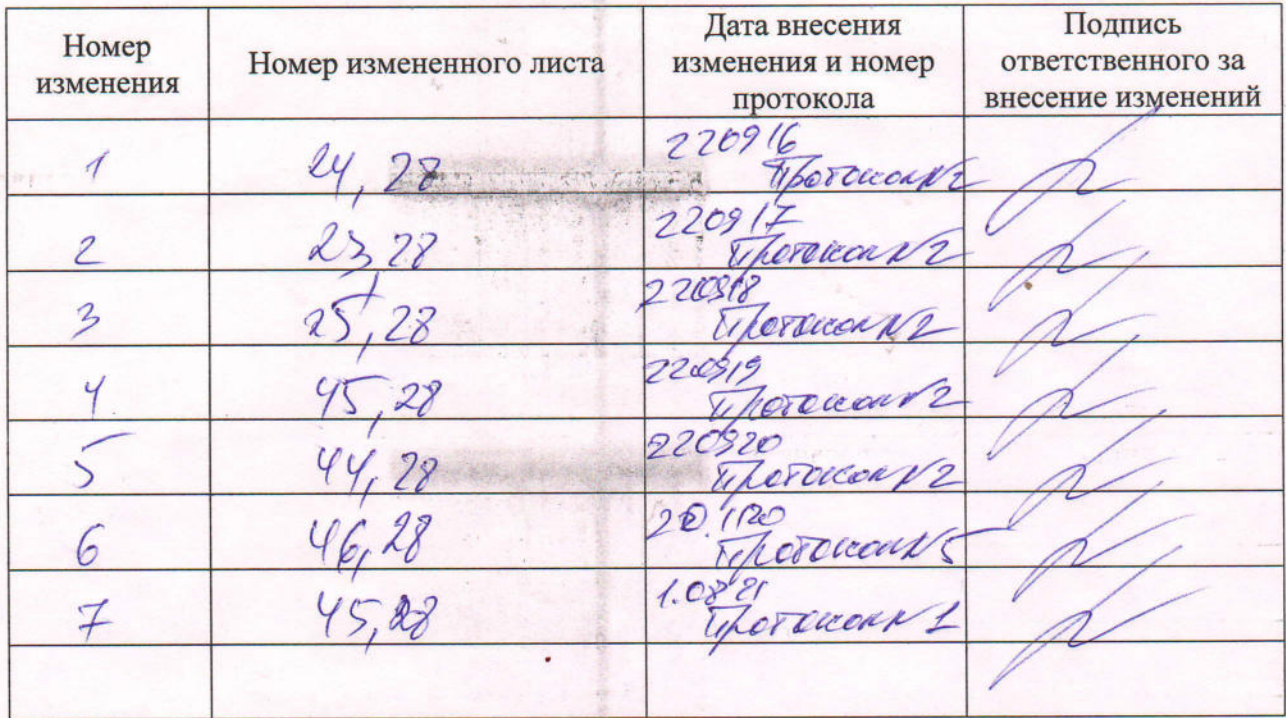 Номер изменения
Номер измененного листа
Дата внесения изменения и номер протокола
Подпись ответственного за внесение изменений
1
24, 28
220916
Протокол №2
2
23, 28
220917
Протокол №2
3
25, 28
220918
Протокол №2
4
45, 28
220919
Протокол №2
5
44, 28
220920
Протокол №2
6
46, 28
20.1120
Протокол №5
7
45, 28
1.0821
Протокол №1